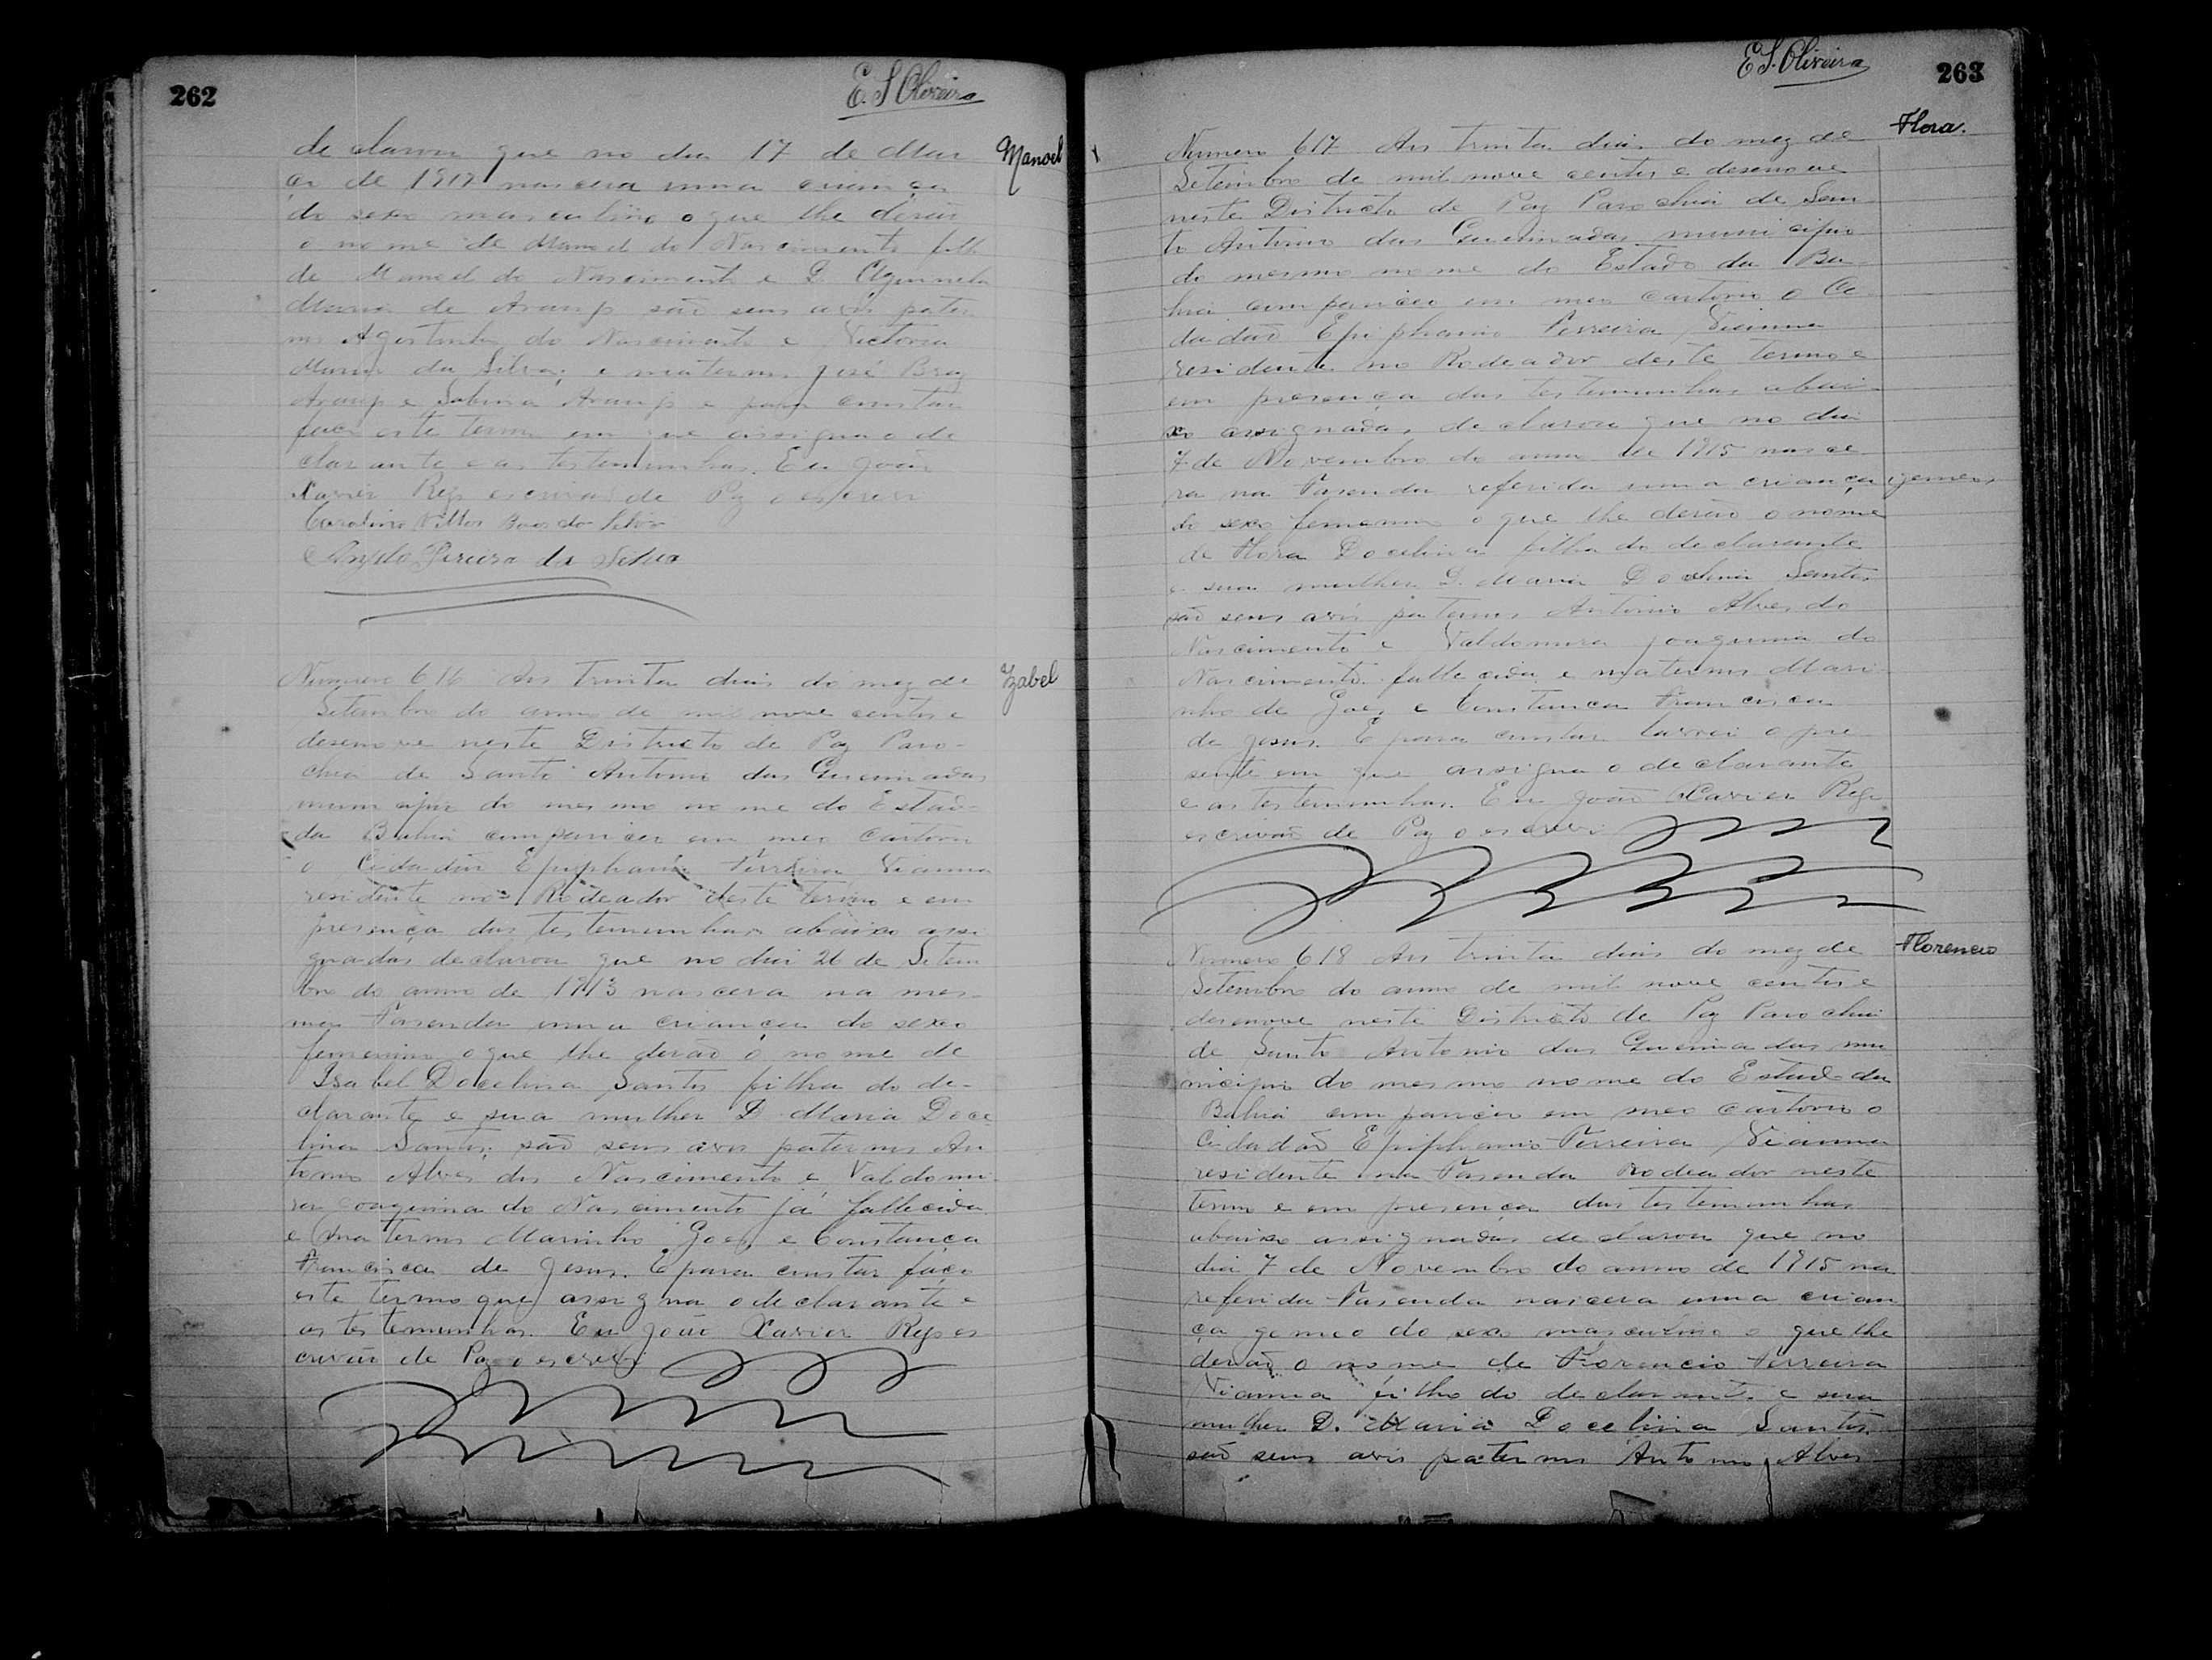 262
E. S. Oliveira
Manoel
declarou que no dia 17 de Mar
ço de 1919 nascera uma criança
do sexo masculino o que lhe derão
o nome de Manoel do Nascimento filh
de Manoel do Nascimento e D.
Maria de Araujo são seus avós pater
nos Agostinho do Nascimento e Victoria
Maria da Silva, e maternos José Braz
Araujo e Sabina Araujo e para constar
faço este termo em que assigna o de
clarante e as testemunhas. Eu João
Xavier Reys escrivão de Paz o escrevi
Carolino Villas Boas da Silva
Angelo Pereira da Silva
Izabel
Numero 616 Aos trinta dias do mez de
Setembro do anno de mil nove centos e
desenove neste Districto de Paz Paro-
chia de Santo Antonio das Queimadas
municipio do mesmo nome do Estado
da Bahia compareceu em meo cartorio
o Cidadão Epiphanio Ferreira Vianna
residente no Rodeador deste termo e em
presença das testemunhas abaixo assi
gnadas declarou que no dia 26 de Setem
bro do anno de 1913 nascera na mes-
ma Fasenda uma criança do sexo
femenino o que lhe derão o nome de
Isabel Docelina Santos filha do de-
clarante e sua mulher D. Maria Doce
lina Santos, são seus avos paternos An
tonio Alves do Nascimento e Valdomi
ra Joaquina do Nascimento já fallecida
e maternos Marinho Goes, e Constança
Francisca de Jesus. E para constar faço
este termo que assigna o declarante e
as testemunhas. Eu João Xavier Reys es
crivão de Paz o escrevi
E S. Oliveira
263
Flora.
Numero 617 Aos trinta dias do mez de
Setembro de mil nove centos e desenove
neste Districto de Paz Parochia de San
to Antonio das Queimadas municipio
do mesmo nome do Estado da Ba-
hia compareceo em meo cartorio o Ci
dadão Epiphanio Ferreira Vianna
residente no Rodeador deste termo e
em presença das testemunhas abai
xo assignadas, declarou que no dia
7 de Novembro do anno de 1915 nasce
ra na Fasenda referida uma criança gemeos
do sexo femenino o que lhe derão o nome
de Flora Docelina filha do declarante
e sua mulher D. Maria Docelina Santos
são seus avós paternos Antonio Alves do
Nascimento e Valdomira Joaquina do
Nascimento fallecida e maternos Mari
nho de Goes, e Constança Francisca
de Jesus. E para constar lavrei o pre
sente em que assigna o declarante
e as testemunhas. Eu João Xavier Reys
escrivão de Paz o escrevi
Florencio
Numero 618 Aos trinta dias do mez de
Setembro do anno de mil nove centos e
desenove neste Districto de Paz Parochia
de Santo Antonio das Queimadas mu
nicipio do mesmo nome do Estado da
Bahia compareceu em meo cartorio o
Cidadão Epiphanio Ferreira Vianna
residente na Fasenda Rodeador neste
termo e em presença das testemunhas
abaixo assignadas declarou que no
dia 7 de Novembro do anno de 1915 na
referida Fasenda nascera uma crian
ça gemeo do sexo masculino o que lhe
derão o nome de Florencio Ferreira
Vianna filho do declarante e sua
mulher D. Maria Docelina Santos.
são seus avós paternos Antonio Alves